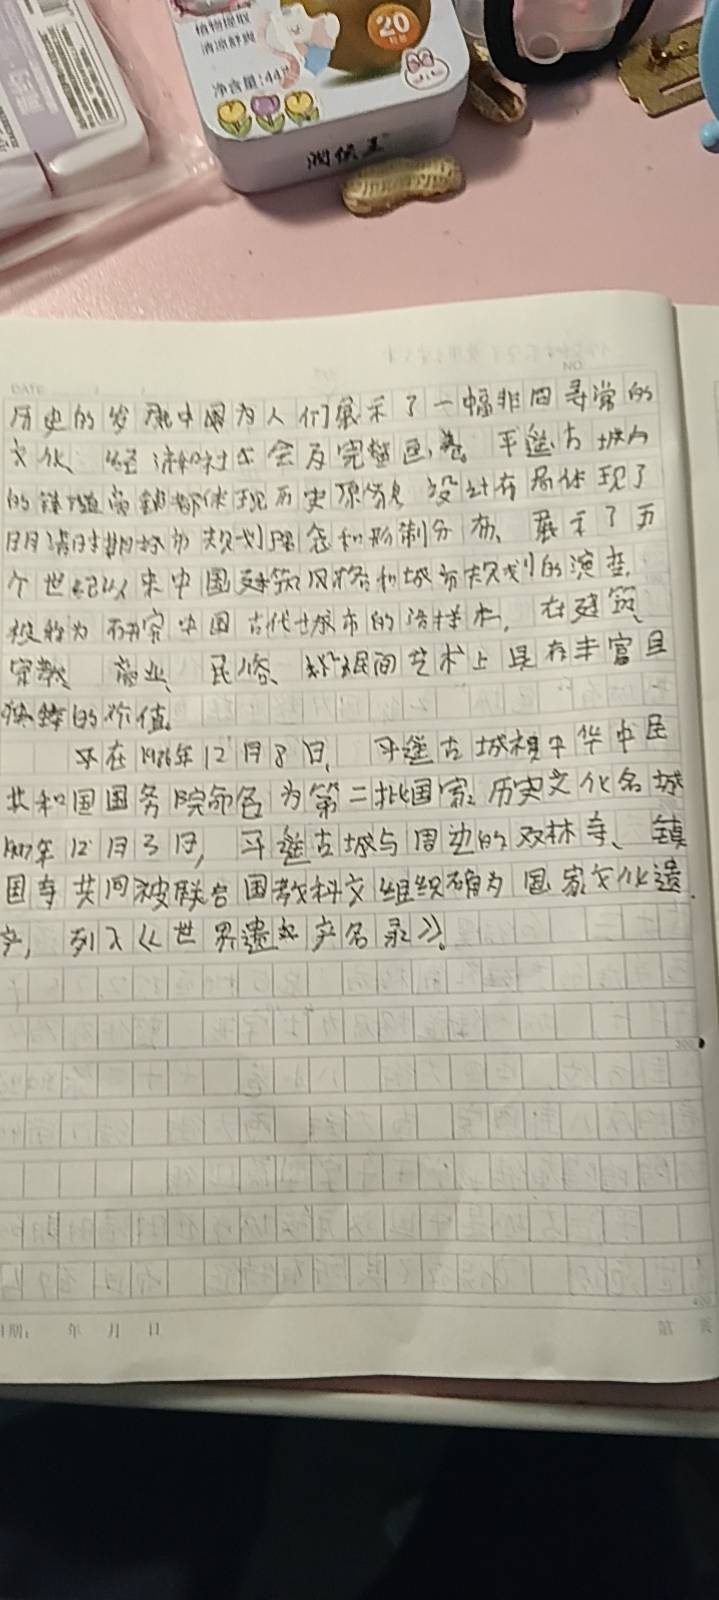 植物提取
清凉舒爽
20
净含量:44
润喉
DATE
NO.
历史的发展中国为人们展示了一幅非同寻常的
文化、经济和社会会及完整画卷。平遥古城内
的 商铺都体现历史原 设计布局体现了
明清时期城市规划理念和形制分布、展示了五
个世纪以来中国建筑风格和城市规划的演变,
被称为研究中国古代城市的活样本,在建筑、
宗教、商业、民俗、 民间艺术上具有丰富且
独特的价值。
在1986年12月8日,平遥古城被中华中民
共和国国务院命名为第二批国家历史文化名城
1997年12月3日,平遥古城与周边的双林寺、镇
国寺共同被联合国教科文组织确为国家文化遗
产,列入《世界遗 产名录》。
300
400
日期: 年 月 日
第 页